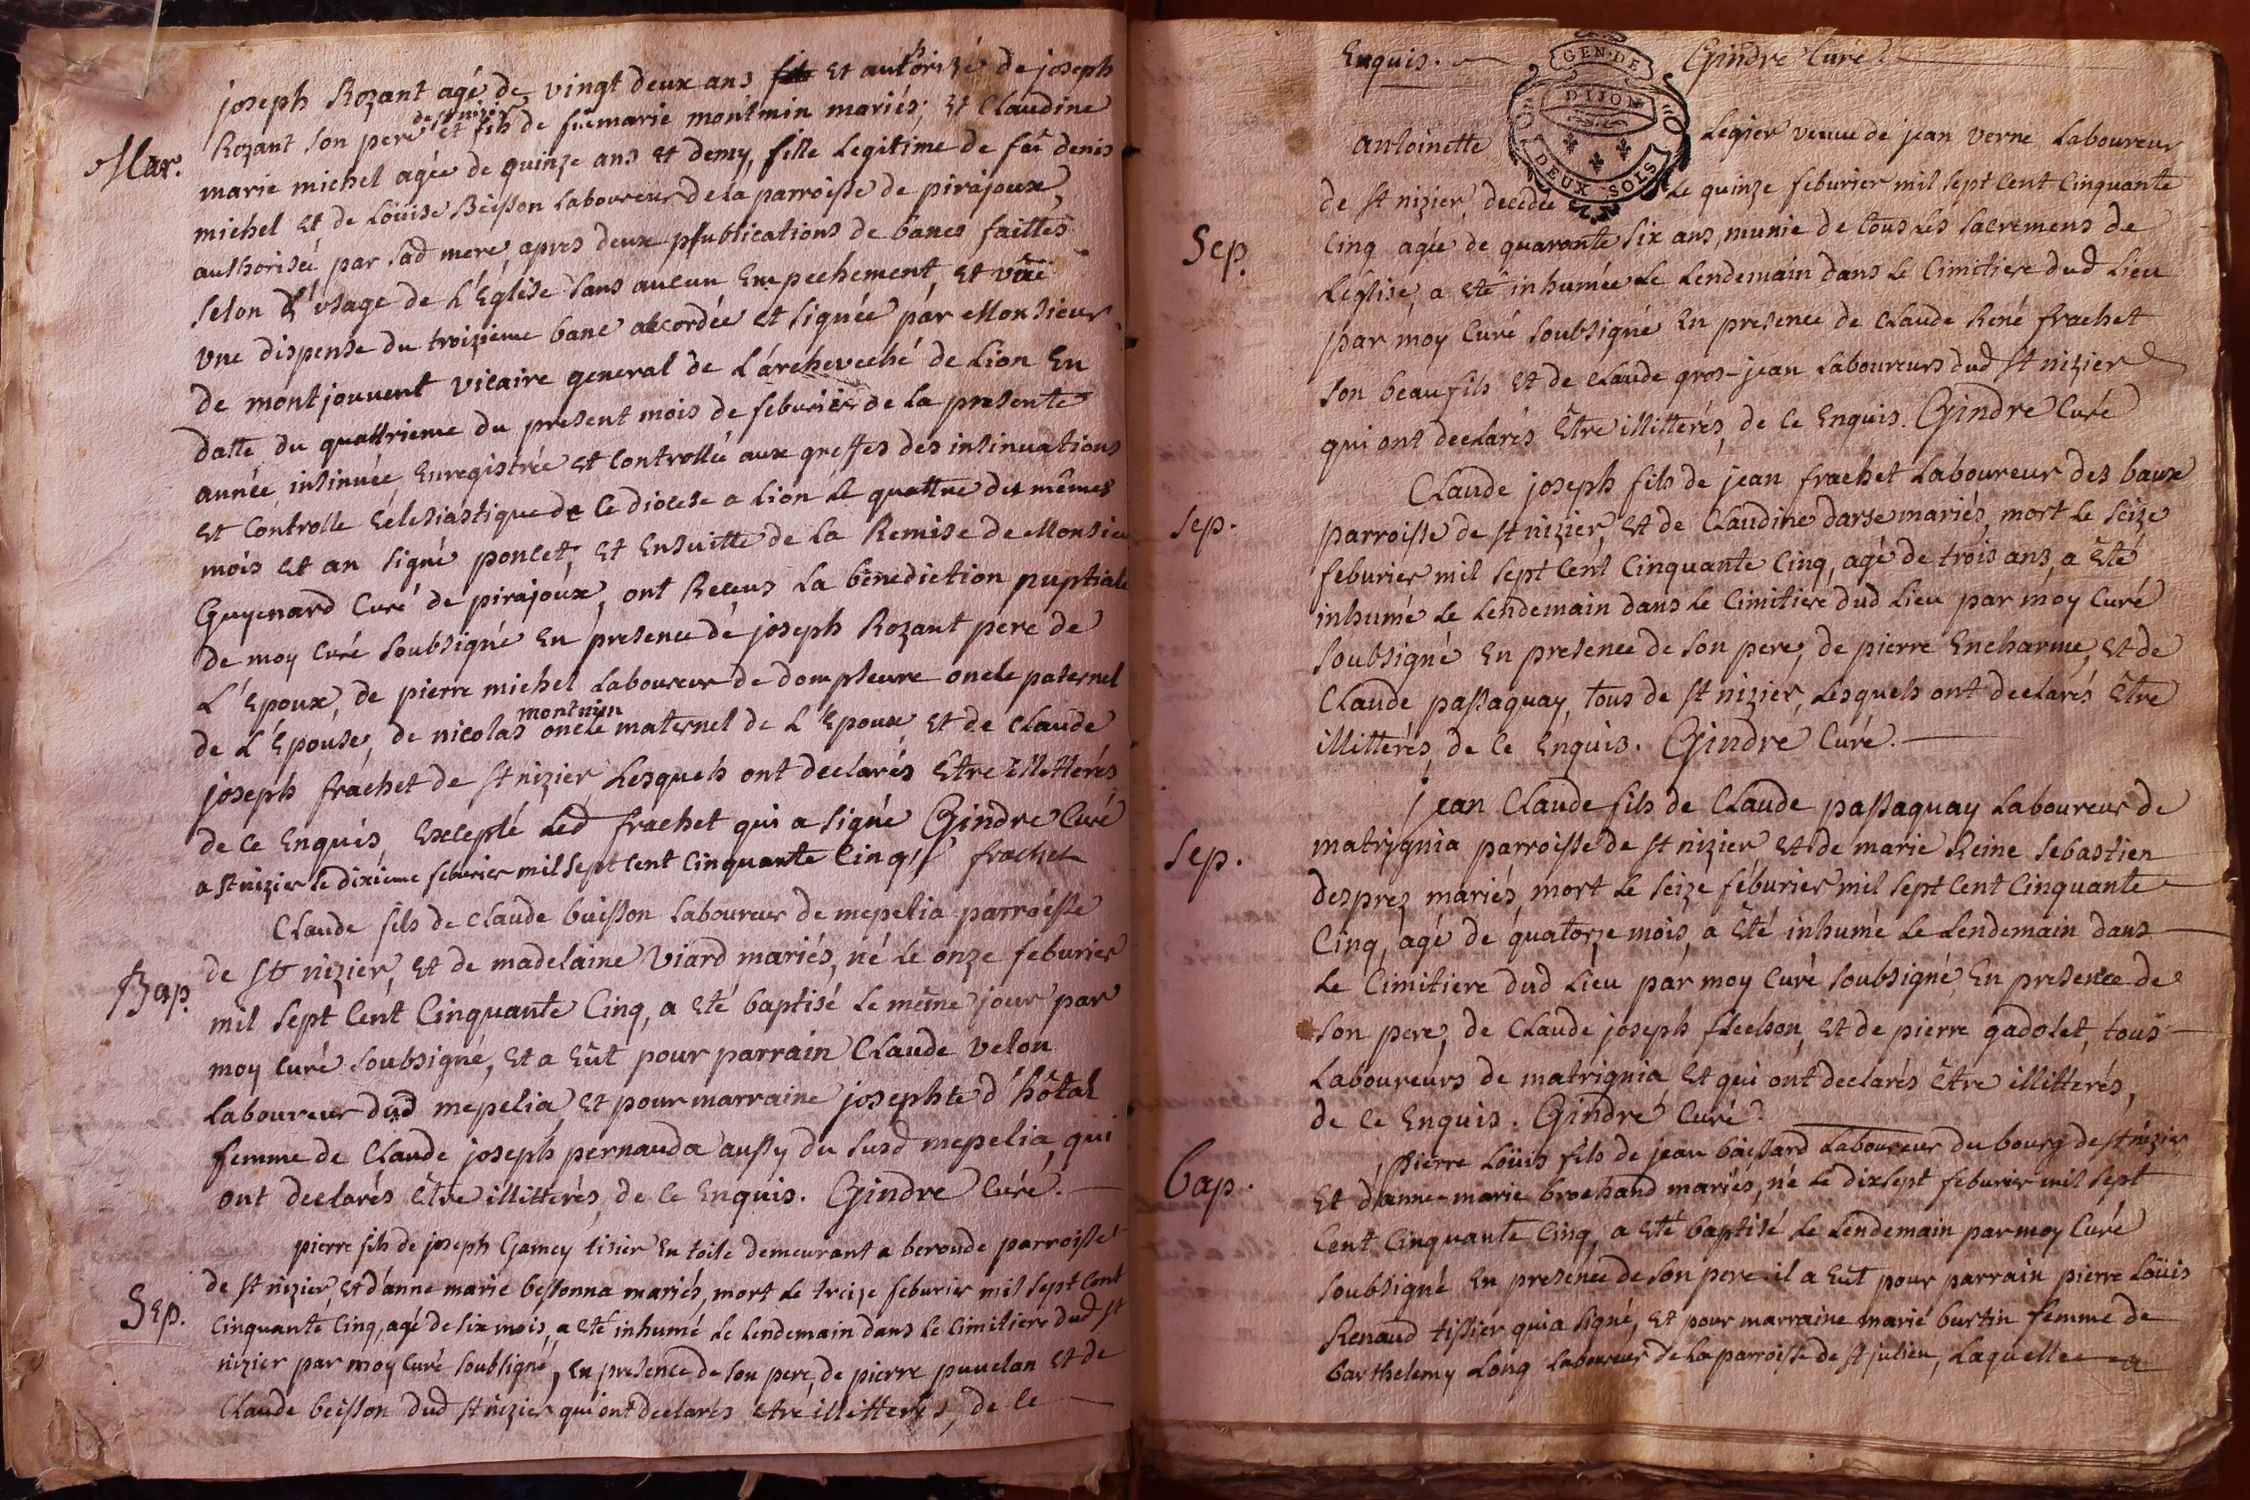 joseph Rozant agé de vingt deux ans et authorizé de joseph
Mar.
Rozant son pere de st nizier et fils de fue marie montmin mariés, et Claudine
marie michel agée de quinze ans et demy, fille legitime de feu denis
michel et de Loüise Beisson laboureurs de la parroisse de pirajoux,
authorisée par sad mere, apres deux publications de bancs faittes
selon l'usage de L'Eglise sans aucun Empechement, et vüe
vne dispense du troizieme banc accordée et signée par Monsieur
de montjouvent vicaire general de L'archeveché de Lion En
datte du quattrieme du present mois de feburier de la presente
année insinuée, Enregistrée et Controllée aux greffes des insinuations
et Controlle Eclesiastique de ce diocese a Lion le quattre des mêmes
mois et an signé poncet, et Ensuitte de la Remise de Monsieu
Guyenard Curé de pirajoux, ont Receus la benediction nuptiale
de moy Curé soubsigné En presence de joseph Rozant pere de
L'Epoux, de pierre michel Laboureur de dompseure oncle paternel
de L'Epouse, de nicolas montmin oncle maternel de L'Epoux, et de Claude
joseph frachet de st nizier Lesquels ont declarés Etre illitterés
de ce Enquis, Excepté Led frachet qui a signé Gindre Curé
a st nizier le dixieme feburier mil sept cent cinquante cinq frachet
Claude fils de Claude buisson Laboureur de mepelia parroisse
Bap.
de st nizier, et de madelaine Viard mariés, né le onze feburier
mil sept Cent Cinquante Cinq, a eté baptisé le même jour par
moy Curé soubsigné, et a Eüt pour parrain Claude Velon
Laboureur dud mepelia, et pour marraine josephte d'hôtal
femme de Claude joseph pernauda aussy du susd mepelia, qui
ont declarés être illitterés, de ce Enquis. Gindre Curé.
pierre fils de joseph Gamey tisier en toile demeurant a beroude parroisse
Sep.
de st nizier, et d'anne marie bessonna mariés, mort le treize feburier mil sept cent
cinquante cinq, agé de six mois, a eté inhumé le lendemain dans le cimitiere dud st
nizier par moy Curé soubsigné, en presence de son pere, de pierre puvelan et de
Claude beisson dud st nizier qui ont declarés etre illitterés, de ce
Enquis. Gindre Curé.
GEN. DE
DIJON
DEUX SOLS
antoinette Legier veuve de jean verne Laboureur
de st nizier, decedée Le quinze feburier mil sept Cent Cinquante
Sep.
Cinq agée de quarante six ans, munie de tous les sacremens de
L'eglise, a eté inhumée le Lendemain dans Le Cimitiere dud Lieu
par moy Curé soubsigné En presence de Claude René frachet
son beaufils et de Claude gros-jean Laboureurs dud st nizier
qui ont declarés Être illitterés, de ce Enquis. Gindre Curé
Claude joseph fils de jean frachet Laboureur des baux
Sep.
parroisse de st nizier, et de Claudine darse mariés, mort Le seize
feburier mil sept Cent Cinquante Cinq, agé de trois ans, a êté
inhumé le Lendemain dans Le Cimitiere dud Lieu par moy Curé
soubsigné En presence de son pere, de pierre Encharme, et de
Claude passaquay, tous de st nizier, Lesquels ont declarés être
illitterés, de ce Enquis. Gindre Curé.
jean Claude fils de Claude passaquay Laboureur de
Sep.
matrignia parroisse de st nizier et de marie Reine sebastien
desprez mariés, mort Le seize feburier mil sept Cent Cinquante
Cinq, agé de quatorze mois, a êté inhumé Le Lendemain dans
Le Cimitiere dud Lieu par moy Curé soubsigné En presence de
son pere, de Claude joseph flechon, et de pierre gadolet, tous
Laboureurs de matrignia et qui ont declarés être illitterés,
de ce Enquis. Gindre Curé.
pierre Loüis fils de jean baissard Laboureur du bourg de st nizier
bap.
et d'anne-marie brochand mariés, né Le dixsept feburier mil sept
Cent Cinquante Cinq, a eté baptisé Le Lendemain par moy Curé
soubsigné En presence de son pere. il a Eüt pour parrain pierre Loüis
Renaud tissier qui a signé, et pour marraine marie burtin femme de
barthelemy Long Laboureur de La parroisse de st julien, Laquelle a